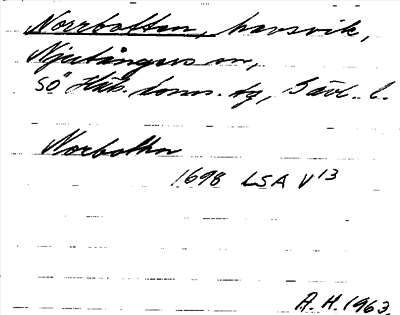 Norrbotten, havsvik,
Njutångers sn,
SÖ Häls. doms. tg, Gävl. l.
Norbotten
1698 LSA V 13
A.H. 1963.